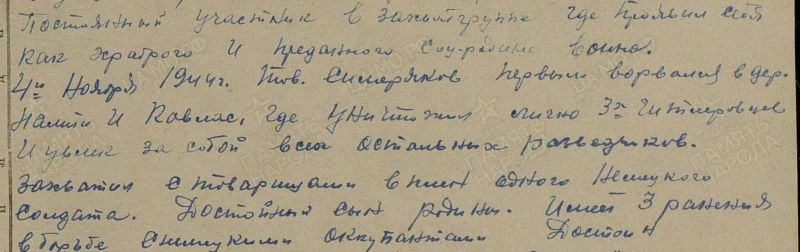 Постоянный участник в захватгруппе где проявил себя
как храброго и преданного соц-родине воина.
4го Ноября 1944г. тов. Симеряков первым ворвался в дер.
и Кавлас, где уничтожил лично 3х Гитлеровцев
и увлек за собой всех остальных разведчиков.
Захватил с товарищами в плен одного Немецкого
солдата. Достойный сын родины. Имеет 3 ранения
в борьбе с немецкими оккупантами Достоин